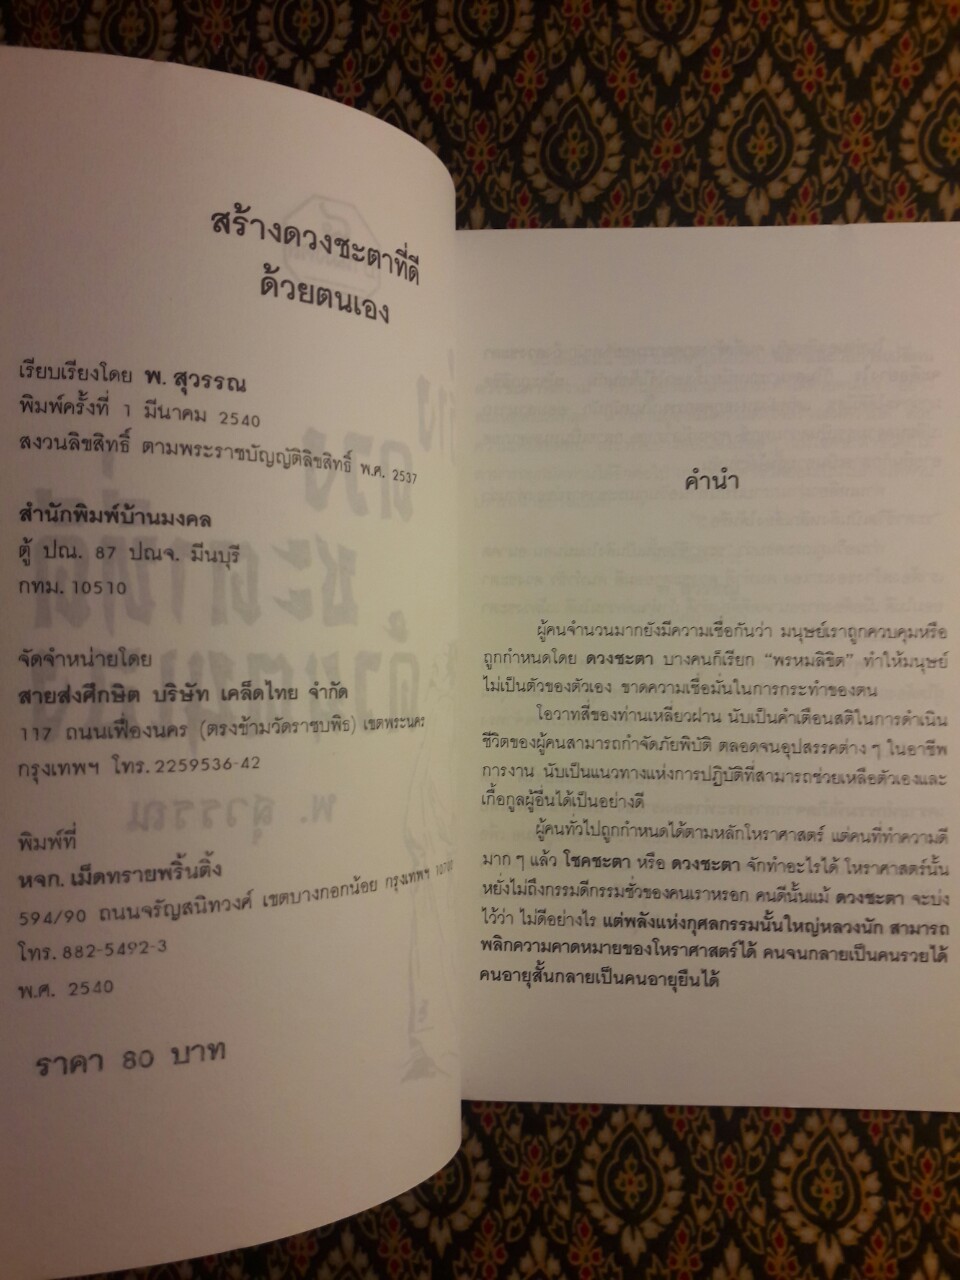 สร้างดวงชะตาที่ดี
ด้วยตนเอง
เรียบเรียงโดย พ. สุวรรณ
พิมพ์ครั้งที่ 1 มีนาคม 2540
สงวนลิขสิทธิ์ ตามพระราชบัญญัติลิขสิทธิ์ พ.ศ. 2537
สำนักพิมพ์บ้านมงคล
ตู้ ปณ. 87 ปณจ. มีนบุรี
กทม. 10510
จัดจำหน่ายโดย
สายส่งศึกษิต บริษัท เคล็ดไทย จำกัด
117 ถนนเฟื่องนคร (ตรงข้ามวัดราชบพิธ) เขตพระนคร
กรุงเทพฯ โทร. 2259536-42
พิมพ์ที่
หจก. เม็ดทรายพริ้นติ้ง
594/90 ถนนจรัญสนิทวงศ์ เขตบางกอกน้อย กรุงเทพฯ
โทร. 882-5492-3
พ.ศ. 2540
ราคา 80 บาท
คำนำ
ผู้คนจำนวนมากยังมีความเชื่อกันว่า มนุษย์เราถูกควบคุมหรือ
ถูกกำหนดโดย ดวงชะตา บางคนก็เรียก “พรหมลิขิต” ทำให้มนุษย์
ไม่เป็นตัวของตัวเอง ขาดความเชื่อมั่นในการกระทำของตน
โอวาทสี่ของท่านเหลียวฝาน นับเป็นคำเตือนสติในการดำเนิน
ชีวิตของผู้คนสามารถกำจัดภัยพิบัติ ตลอดจนอุปสรรคต่าง ๆ ในอาชีพ
การงาน นับเป็นแนวทางแห่งการปฏิบัติที่สามารถช่วยเหลือตัวเองและ
เกื้อกูลผู้อื่นได้เป็นอย่างดี
ผู้คนทั่วไปถูกกำหนดได้ตามหลักโหราศาสตร์ แต่คนที่ทำความดี
มาก ๆ แล้ว โชคชะตา หรือ ดวงชะตา จักทำอะไรได้ โหราศาสตร์นั้น
หยั่งไม่ถึงกรรมดีกรรมชั่วของคนเราหรอก คนดีนั้นแม้ ดวงชะตา จะบ่ง
ไว้ว่า ไม่ดีอย่างไร แต่พลังแห่งกุศลกรรมนั้นใหญ่หลวงนัก สามารถ
พลิกความคาดหมายของโหราศาสตร์ได้ คนจนกลายเป็นคนรวยได้
คนอายุสั้นกลายเป็นคนอายุยืนได้